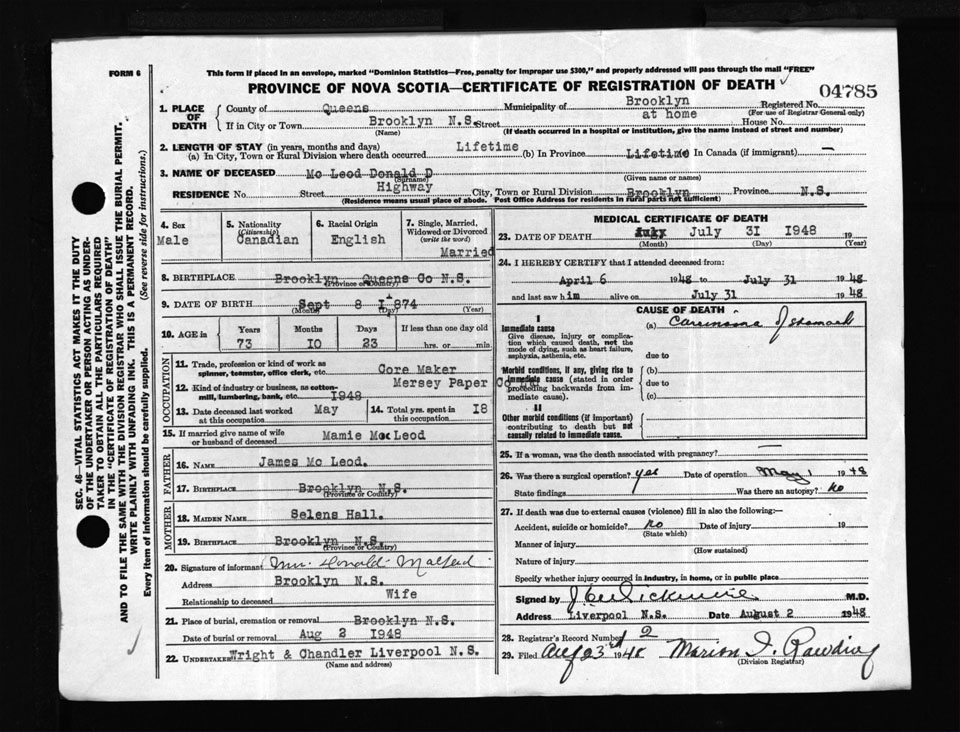 FORM 6
This form if placed in an envelope, marked "Dominion Statistics—Free, penalty for improper use $300," and properly addressed will pass through the mail "FREE"
PROVINCE OF NOVA SCOTIA—CERTIFICATE OF REGISTRATION OF DEATH
04785
1. PLACE OF DEATH County of Queens Municipality of Brooklyn Registered No.
(For use of Registrar General only)
If in City or Town Brooklyn N.S. Street at home House No.
(Name) (If death occurred in a hospital or institution, give the name instead of street and number)
2. LENGTH OF STAY (in years, months and days)
(a) In City, Town or Rural Division where death occurred Lifetime (b) In Province Lifetime In Canada (if immigrant) —
3. NAME OF DECEASED Mc Leod Donald D
(Surname) (Given name or names)
RESIDENCE No. Street Highway City, Town or Rural Division Brooklyn Province N.S.
(Residence means usual place of abode. Post Office Address for residents in rural parts not sufficient)
4. Sex
Male
5. Nationality (Citizenship)
Canadian
6. Racial Origin
English
7. Single, Married, Widowed or Divorced (write the word)
Married
8. BIRTHPLACE Brooklyn Queens Co N.S.
(Province or Country)
9. DATE OF BIRTH Sept 8 1874
(Month) (Day) (Year)
10. AGE in Years Months Days If less than one day old
73 10 23 hrs. or min.
OCCUPATION
11. Trade, profession or kind of work as spinner, teamster, office clerk, etc. Core Maker
12. Kind of industry or business, as cotton-mill, lumbering, bank, etc. Mersey Paper
13. Date deceased last worked at this occupation May 1948
14. Total yrs. spent in this occupation 18
15. If married give name of wife or husband of deceased Mamie Mac Leod
FATHER
16. NAME James Mc Leod.
17. BIRTHPLACE Brooklyn N.S.
(Province or Country)
MOTHER
18. MAIDEN NAME Selens Hall.
19. BIRTHPLACE Brooklyn N.S.
(Province or Country)
20. Signature of informant Mrs. Donald MacLeod
Address Brooklyn N.S.
Relationship to deceased Wife
21. Place of burial, cremation or removal Brooklyn N.S.
Date of burial or removal Aug 2 1948
22. UNDERTAKER Wright & Chandler Liverpool N.S.
(Name and address)
MEDICAL CERTIFICATE OF DEATH
23. DATE OF DEATH July July 31 1948 19
(Month) (Day) (Year)
24. I HEREBY CERTIFY that I attended deceased from:
April 6 1948 to July 31 1948
and last saw him alive on July 31 1948
CAUSE OF DEATH
I
Immediate cause
Give disease, injury or complication which caused death, not the mode of dying, such as heart failure, asphyxia, asthenia, etc.
(a) Carcinoma of stomach
due to
Morbid conditions, if any, giving rise to immediate cause (stated in order proceeding backwards from immediate cause).
(b)
due to
(c)
II
Other morbid conditions (if important) contributing to death but not causally related to immediate cause.
25. If a woman, was the death associated with pregnancy? —
26. Was there a surgical operation? yes Date of operation May 1 1948
State findings Was there an autopsy? No
27. If death was due to external causes (violence) fill in also the following:—
Accident, suicide or homicide? No Date of injury 19
(State which)
Manner of injury
(How sustained)
Nature of injury
Specify whether injury occurred in industry, in home, or in public place
Signed by M.D.
Address Liverpool N.S. Date August 2 1948
28. Registrar's Record Number 2
29. Filed Aug 23rd 1948 Marion I. Rawding
(Division Registrar)
SEC. 46—VITAL STATISTICS ACT MAKES IT THE DUTY
OF THE UNDERTAKER OR PERSON ACTING AS UNDER-
TAKER TO OBTAIN ALL THE PARTICULARS REQUIRED
IN THE "CERTIFICATE OF REGISTRATION OF DEATH"
AND TO FILE THE SAME WITH THE DIVISION REGISTRAR WHO SHALL ISSUE THE BURIAL PERMIT.
WRITE PLAINLY WITH UNFADING INK. THIS IS A PERMANENT RECORD.
Every item of information should be carefully supplied. (See reverse side for instructions.)